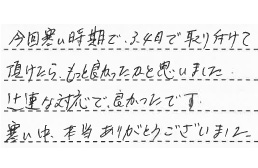 今回寒い時期で、3.4日で取り付けて
頂けたら、もっと良かったかと思いました。
迅速な対応で、良かったです。
寒い中、本当ありがとうございました。